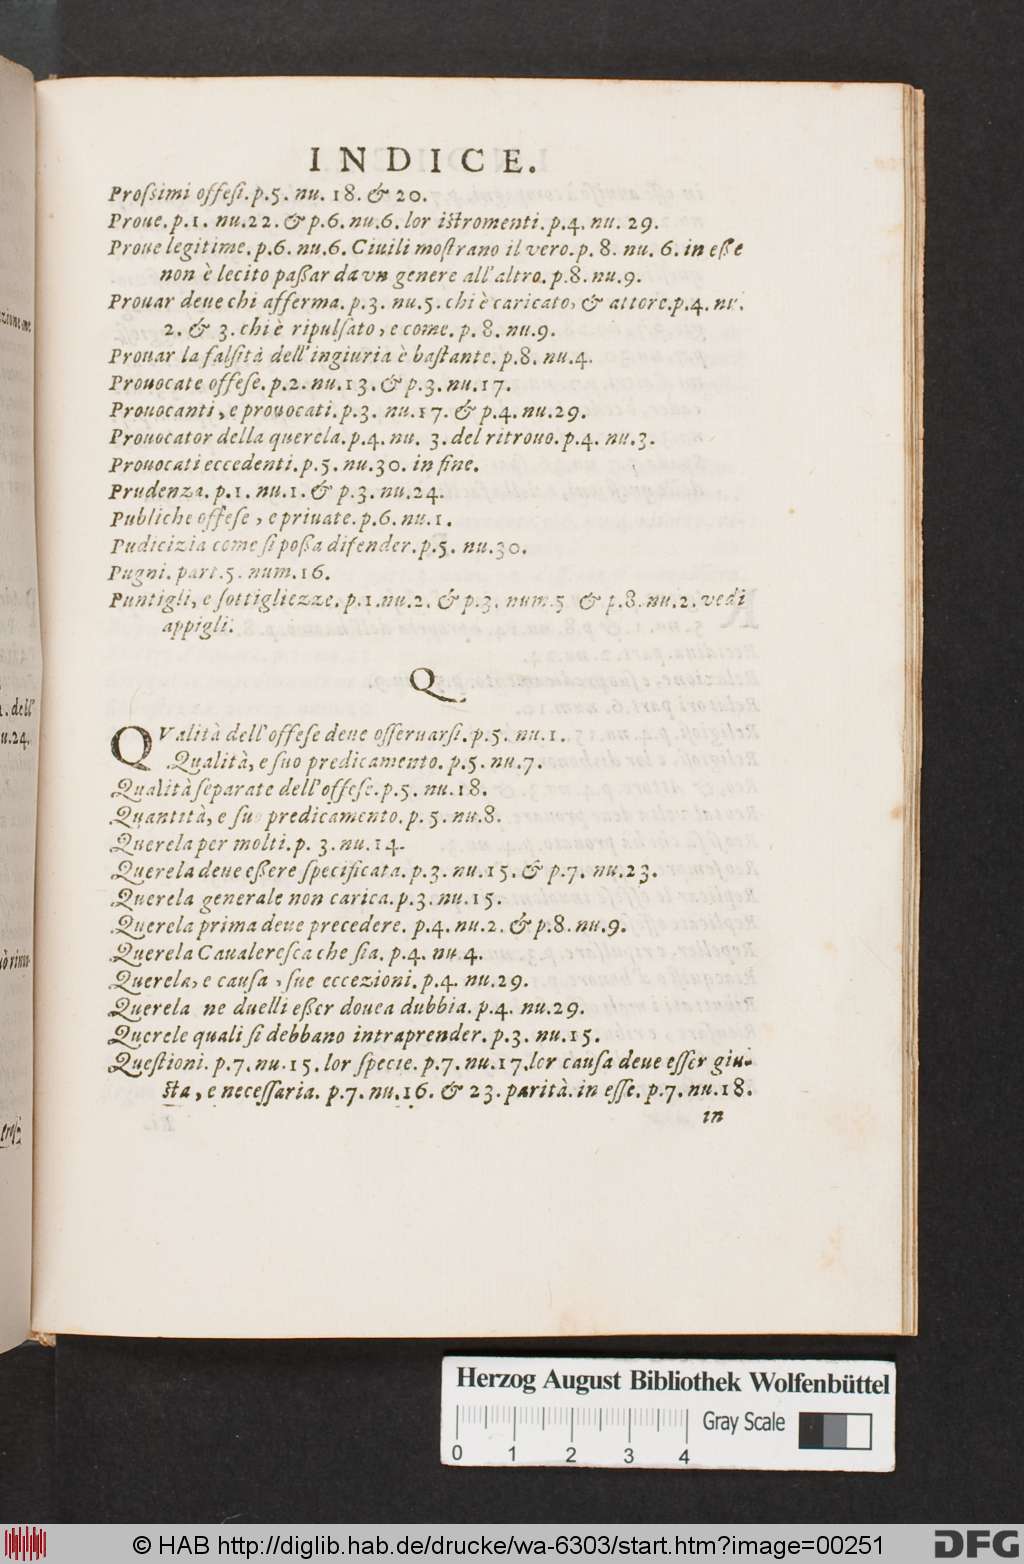 INDICE.
Proſsimi offeſi. p.5. nu. 18. & 20.
Proue. p.1. nu.22. & p.6. nu.6. lor iſtromenti. p.4. nu. 29.
Proue legitime. p.6. nu.6. Ciuili moſtrano il vero. p. 8. nu. 6. in eße
non è lecito paßar da vn genere all'altro. p.8. nu.9.
Prouar deue chi afferma. p.3. nu.5. chi è caricato, & attore. p.4. nu.
2. & 3. chi è ripulſato, e come. p. 8. nu.9.
Prouar la falſità dell'ingiuria è baſtante. p.8. nu.4.
Prouocate offeſe. p.2. nu.13. & p.3. nu.17.
Prouocanti, e prouocati. p.3. nu.17. & p.4. nu.29.
Prouocator della querela. p.4. nu. 3. del ritrouo. p.4. nu.3.
Prouocati eccedenti. p.5. nu.30. in fine.
Prudenza. p.1. nu.1. & p.3. nu.24.
Publiche offeſe, e priuate. p.6. nu.1.
Pudicizia come ſi poßa difender. p.5. nu.30.
Pugni. part.5. num.16.
Puntigli, e ſottigliezze. p.1. nu.2. & p.3. num.5 & p.8. nu.2. vedi
appigli.
Q
QValità dell'offeſe deue oſſeruarſi. p.5. nu.1.
Qualità, e ſuo predicamento. p.5. nu.7.
Qualità ſeparate dell'offeſe. p.5. nu.18.
Quantità, e ſuo predicamento. p. 5. nu.8.
Querela per molti. p. 3. nu.14.
Querela deue eßere ſpecificata. p.3. nu.15. & p.7. nu.23.
Querela generale non carica. p.3. nu.15.
Querela prima deue precedere. p.4. nu.2. & p.8. nu.9.
Querela Caualereſca che ſia. p.4. nu.4.
Querela, e cauſa, ſue eccezioni. p.4. nu.29.
Querela ne duelli eßer douea dubbia. p.4. nu.29.
Querele quali ſi debbano intraprender. p.3. nu.15.
Queſtioni. p.7. nu.15. lor ſpecie. p.7. nu.17. lor cauſa deue eſſer giu-
ſta, e neceſſaria. p.7. nu.16. & 23. parità. in eſſe. p.7. nu.18.
in
zione
. dell'
u.24.
Herzog August Bibliothek Wolfenbüttel
Gray Scale
0 1 2 3 4
© HAB http://diglib.hab.de/drucke/wa-6303/start.htm?image=00251
DFG